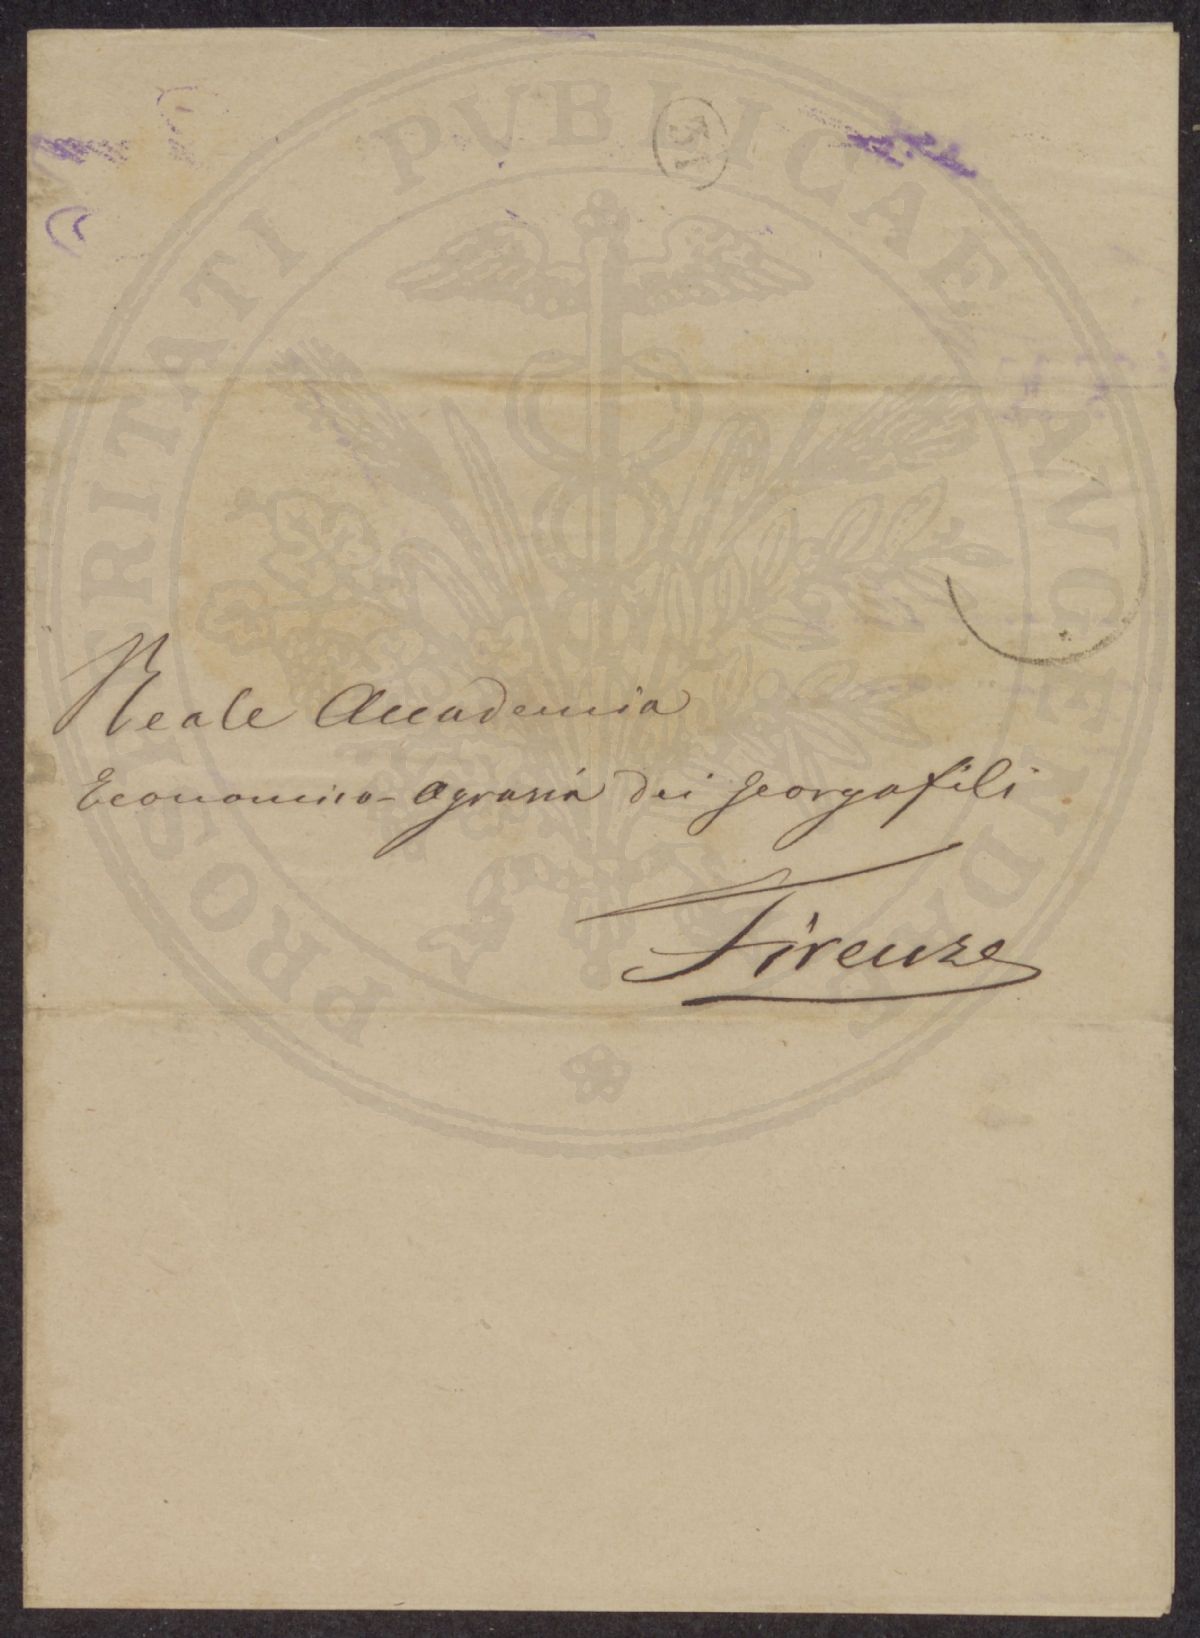 Reale Accademia
Economico-Agraria dei Georgofili
Firenze
PROSPERITATI PVBLICAE AVGENDAE